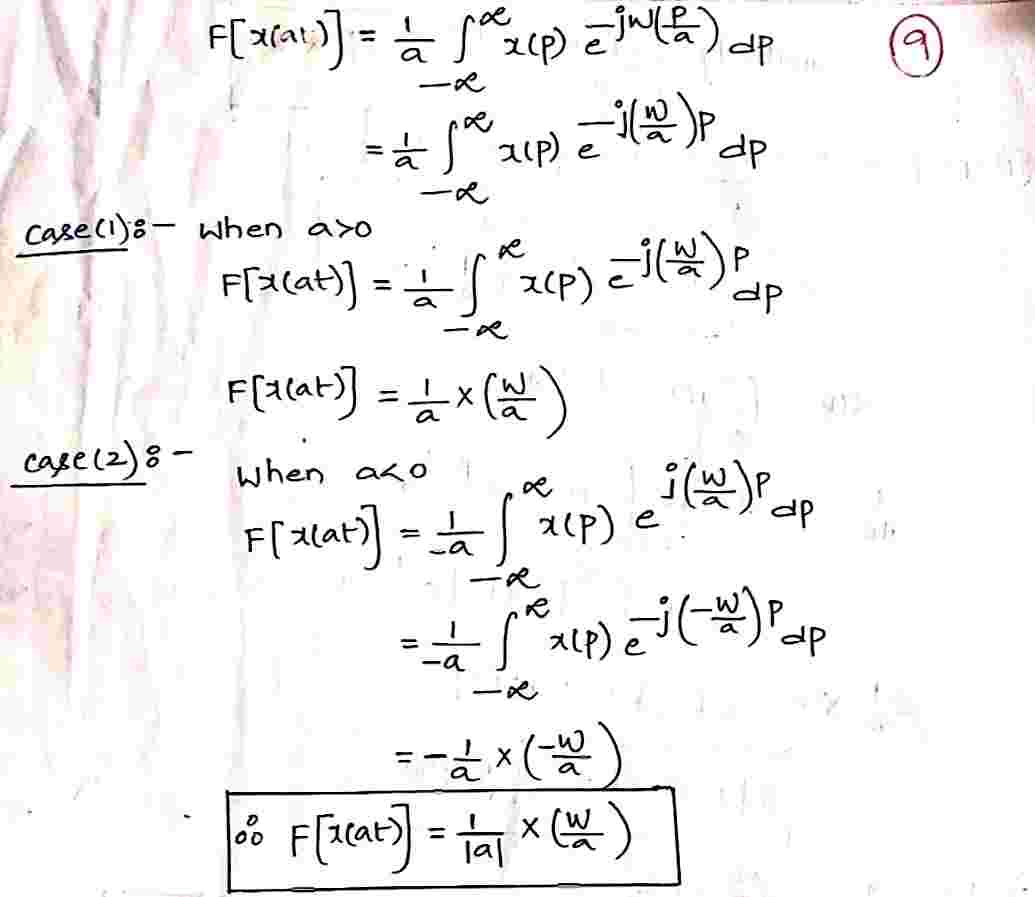 F[x(at)] = 1/a ∫_{-∞}^{∞} x(p) e^{-jw(p/a)} dp
9
= 1/a ∫_{-∞}^{∞} x(p) e^{-j(w/a)p} dp
case(1):- when a>0
F[x(at)] = 1/a ∫_{-∞}^{∞} x(p) e^{-j(w/a)p} dp
F[x(at)] = 1/a X(w/a)
case(2):- when a<0
F[x(at)] = 1/-a ∫_{-∞}^{∞} x(p) e^{j(w/a)p} dp
= 1/-a ∫_{-∞}^{∞} x(p) e^{-j(-w/a)p} dp
= -1/a X(-w/a)
∴ F[x(at)] = 1/|a| X(w/a)